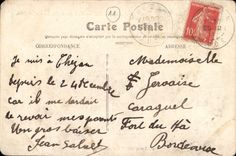 Carte Postale
CORRESPONDANCE
ADRESSE
10
Je suis à
depuis le 24 Décembre
car il me tardait
de revoir mes parents
Un gros baiser
Jean
Mademoiselle
Gervaise
Caraguel
Fort du Hâ
Bordeaux